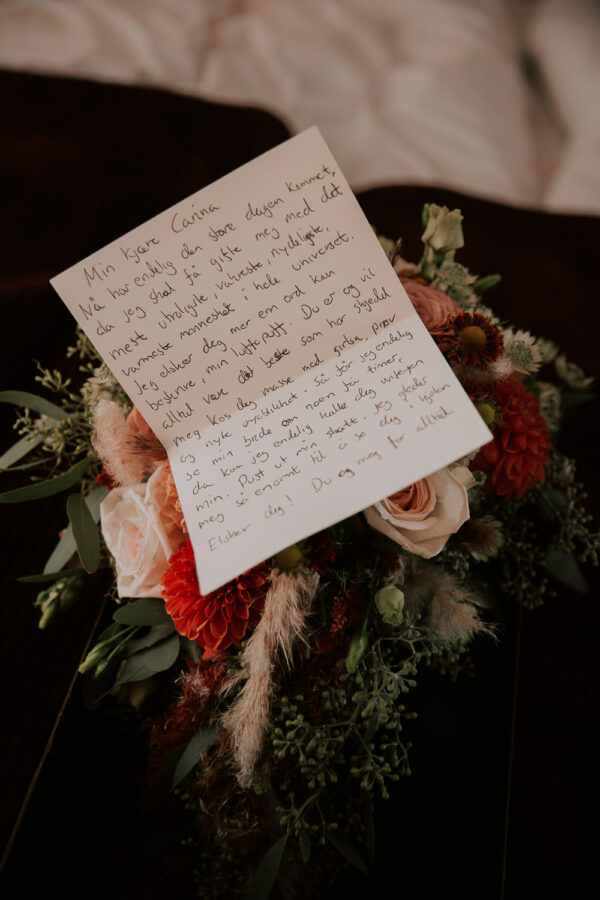 Min kjære Carina
Nå har endelig den store dagen kommet,
da jeg skal få gifte meg med det
mest utroligste, vakreste, nydeligste,
varmeste mennesket i hele universet.
Jeg elsker deg mer enn ord kan
beskrive, min luftputt. Du er og vil
alltid være det beste som har skjedd
meg. Kos deg masse med jentene, prøv
og nyte øyeblikket - så får jeg endelig
se min brud om noen få timer,
da kan jeg endelig kalle deg
min. Pust ut min skatt. Jeg gleder
meg så enormt til å se deg i kjolen
Elsker deg! Du og meg for alltid